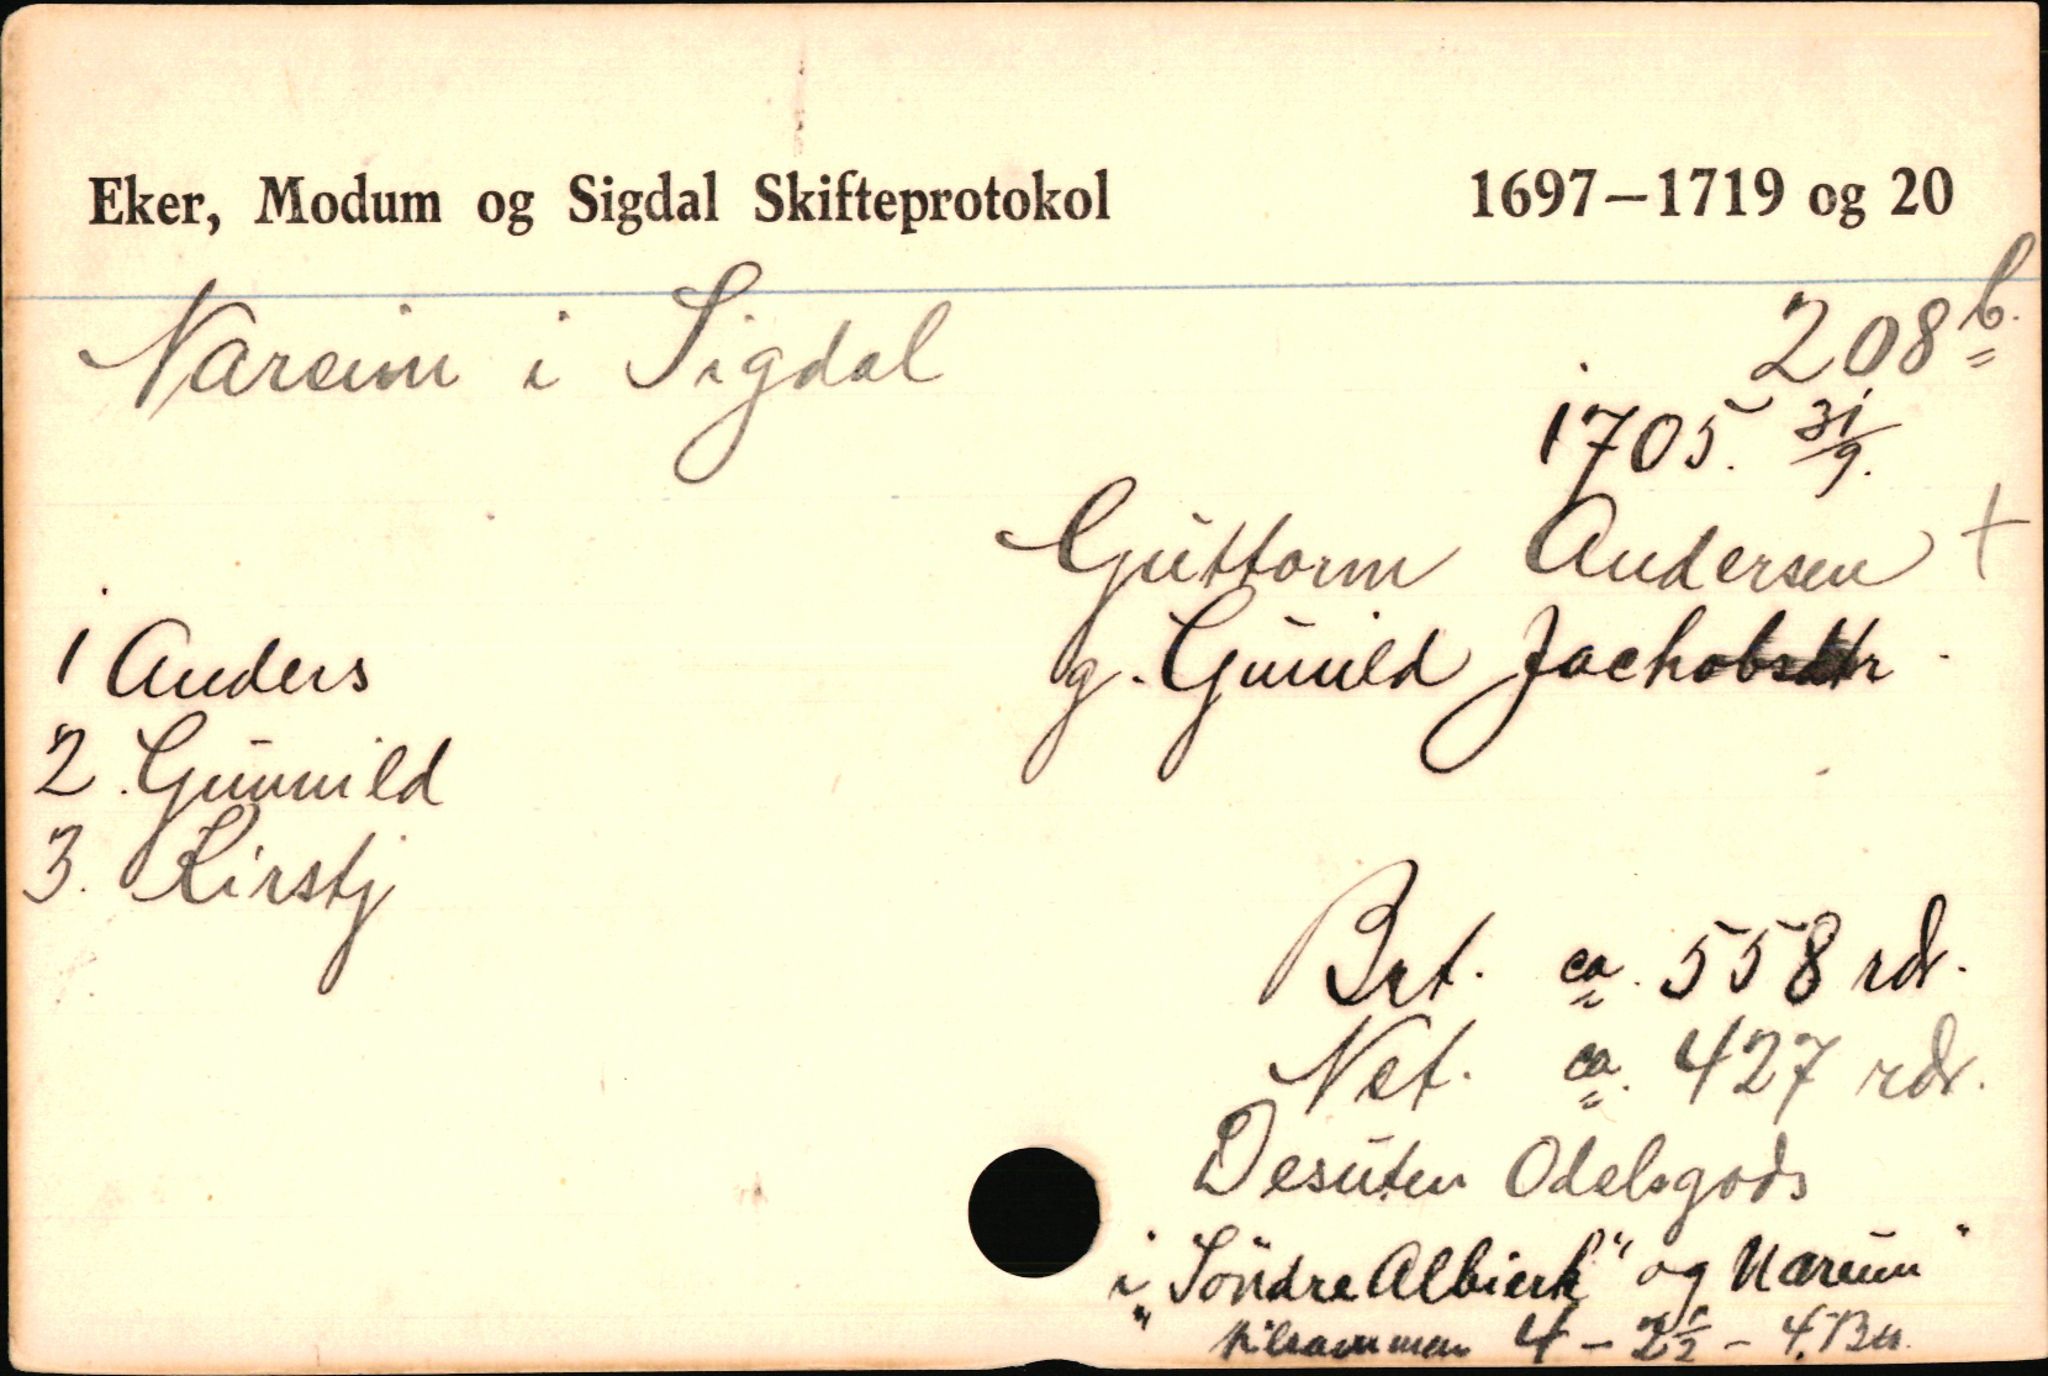 Eker, Modum og Sigdal Skifteprotokol 1697–1719 og 20
Nareim i Sigdal 208 b.
1705. 31/9.
Guttorm Andersen +
g. Gunild Jachobsdtr.
1 Anders
2. Gunnild
3. Kirstj
Brt. ca. 558 rdr.
Net. ca. 427 rdr.
Desuten Odelsgods
i "Søndre Albierk" og "Nareim"
tilsammen 4 – 2 1/2 – 4.